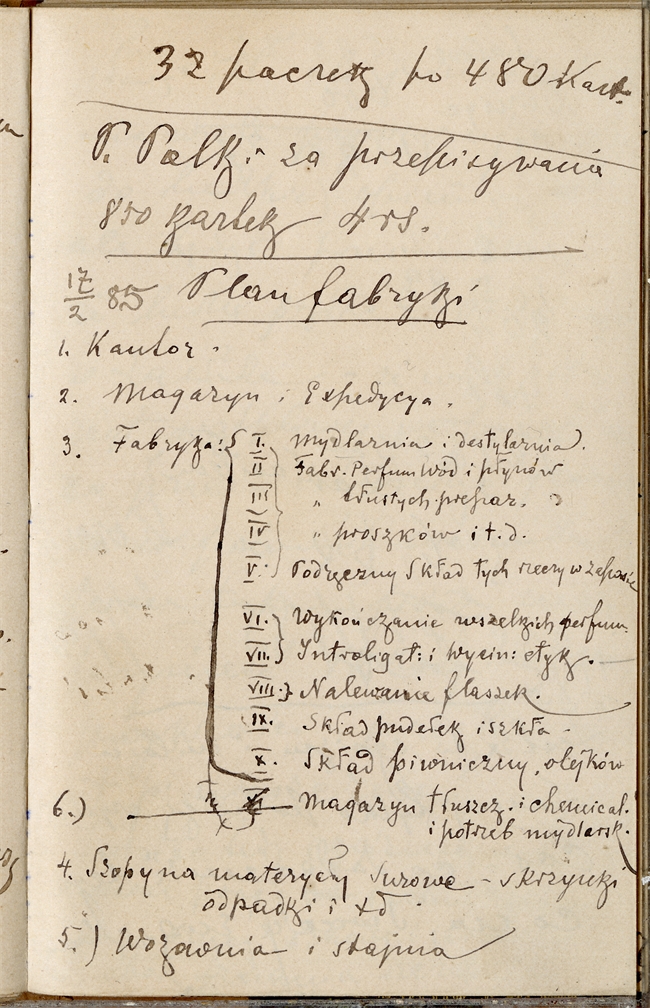 32 paczek po 480 Kart.
P. Palki za przepisywania
850 kartek 4 rs.
17/2 85 Plan fabryki
1. Kantor.
2. Magazyn i Expedycya.
3. Fabryka: I. Mydlarnia i destylarnia.
II Fabr. Perfum wód i płynów
III „ tłustych prepar.
IV „ proszków i t. d.
V. Podręczny Skład tych rzeczy w zapasie
VI. Wykończanie wszelkich perfum.
VII. Introligat: i Wycin: etyk.
VIII. Nalewanie flaszek.
IX. Skład pudełek i szkła.
X. Skład piwniczny, olejków
6.) Magazyn tłuszcz. i chemical.
i potrzeb mydlarsk.
4. Szopy na materyały surowe - skrzynki
odpadki i td.
5.) Wozownia i stajnia